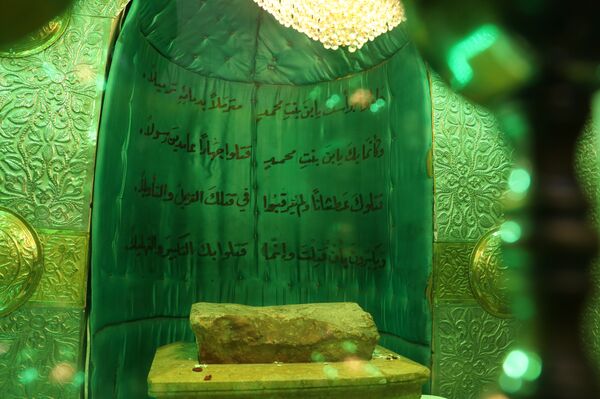 جاؤا برأسك يابن بنتِ محمدٍ متزملاً بدمائهِ تزميلا
وكأنما بك يابن بنتِ محمدٍ قتلوا جهاراً عامدين رسولا
قتلوك عطشاناً ولم يرقبوا في قتلك التنزيل والتأويلا
ويكبرون بأن قُتلتَ وإنما قتلوا بك التكبير والتهليلا